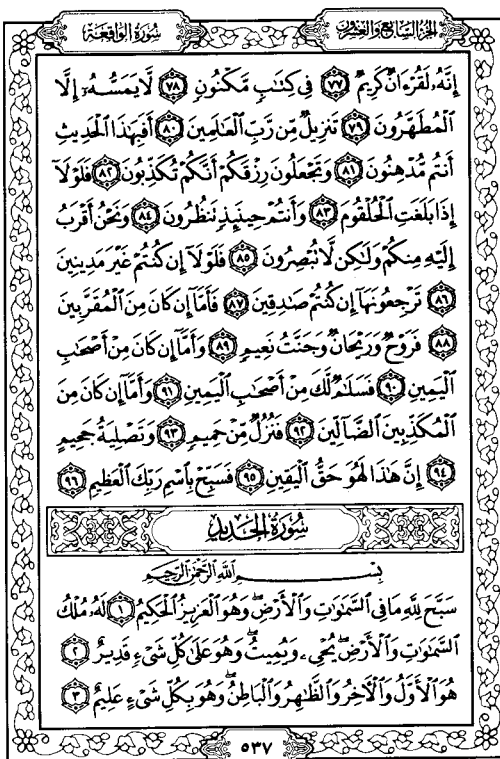 سُورَةُ الوَاقِعَةِ
الجُزْءُ السَّابِعُ وَالعِشْرُونَ
إِنَّهُۥ لَقُرْءَانٌ كَرِيمٌ ٧٧ فِى كِتَٰبٍ مَّكْنُونٍ ٧٨ لَّا يَمَسُّهُۥٓ إِلَّا
ٱلْمُطَهَّرُونَ ٧٩ تَنزِيلٌ مِّن رَّبِّ ٱلْعَٰلَمِينَ ٨٠ أَفَبِهَٰذَا ٱلْحَدِيثِ
أَنتُم مُّدْهِنُونَ ٨١ وَتَجْعَلُونَ رِزْقَكُمْ أَنَّكُمْ تُكَذِّبُونَ ٨٢ فَلَوْلَآ
إِذَا بَلَغَتِ ٱلْحُلْقُومَ ٨٣ وَأَنتُمْ حِينَئِذٍ تَنظُرُونَ ٨٤ وَنَحْنُ أَقْرَبُ
إِلَيْهِ مِنكُمْ وَلَٰكِن لَّا تُبْصِرُونَ ٨٥ فَلَوْلَآ إِن كُنتُمْ غَيْرَ مَدِينِينَ
٨٦ تَرْجِعُونَهَآ إِن كُنتُمْ صَٰدِقِينَ ٨٧ فَأَمَّآ إِن كَانَ مِنَ ٱلْمُقَرَّبِينَ
٨٨ فَرَوْحٌ وَرَيْحَانٌ وَجَنَّتُ نَعِيمٍ ٨٩ وَأَمَّآ إِن كَانَ مِنْ أَصْحَٰبِ
ٱلْيَمِينِ ٩٠ فَسَلَٰمٌ لَّكَ مِنْ أَصْحَٰبِ ٱلْيَمِينِ ٩١ وَأَمَّآ إِن كَانَ مِنَ
ٱلْمُكَذِّبِينَ ٱلضَّآلِّينَ ٩٢ فَنُزُلٌ مِّنْ حَمِيمٍ ٩٣ وَتَصْلِيَةُ جَحِيمٍ
٩٤ إِنَّ هَٰذَا لَهُوَ حَقُّ ٱلْيَقِينِ ٩٥ فَسَبِّحْ بِٱسْمِ رَبِّكَ ٱلْعَظِيمِ ٩٦
سُورَةُ الحَدِيدِ
بِسْمِ ٱللَّهِ ٱلرَّحْمَٰنِ ٱلرَّحِيمِ
سَبَّحَ لِلَّهِ مَا فِى ٱلسَّمَٰوَٰتِ وَٱلْأَرْضِ وَهُوَ ٱلْعَزِيزُ ٱلْحَكِيمُ ١ لَهُۥ مُلْكُ
ٱلسَّمَٰوَٰتِ وَٱلْأَرْضِ يُحْىِۦ وَيُمِيتُ وَهُوَ عَلَىٰ كُلِّ شَىْءٍ قَدِيرٌ ٢
هُوَ ٱلْأَوَّلُ وَٱلْءَاخِرُ وَٱلظَّٰهِرُ وَٱلْبَاطِنُ وَهُوَ بِكُلِّ شَىْءٍ عَلِيمٌ ٣
٥٣٧